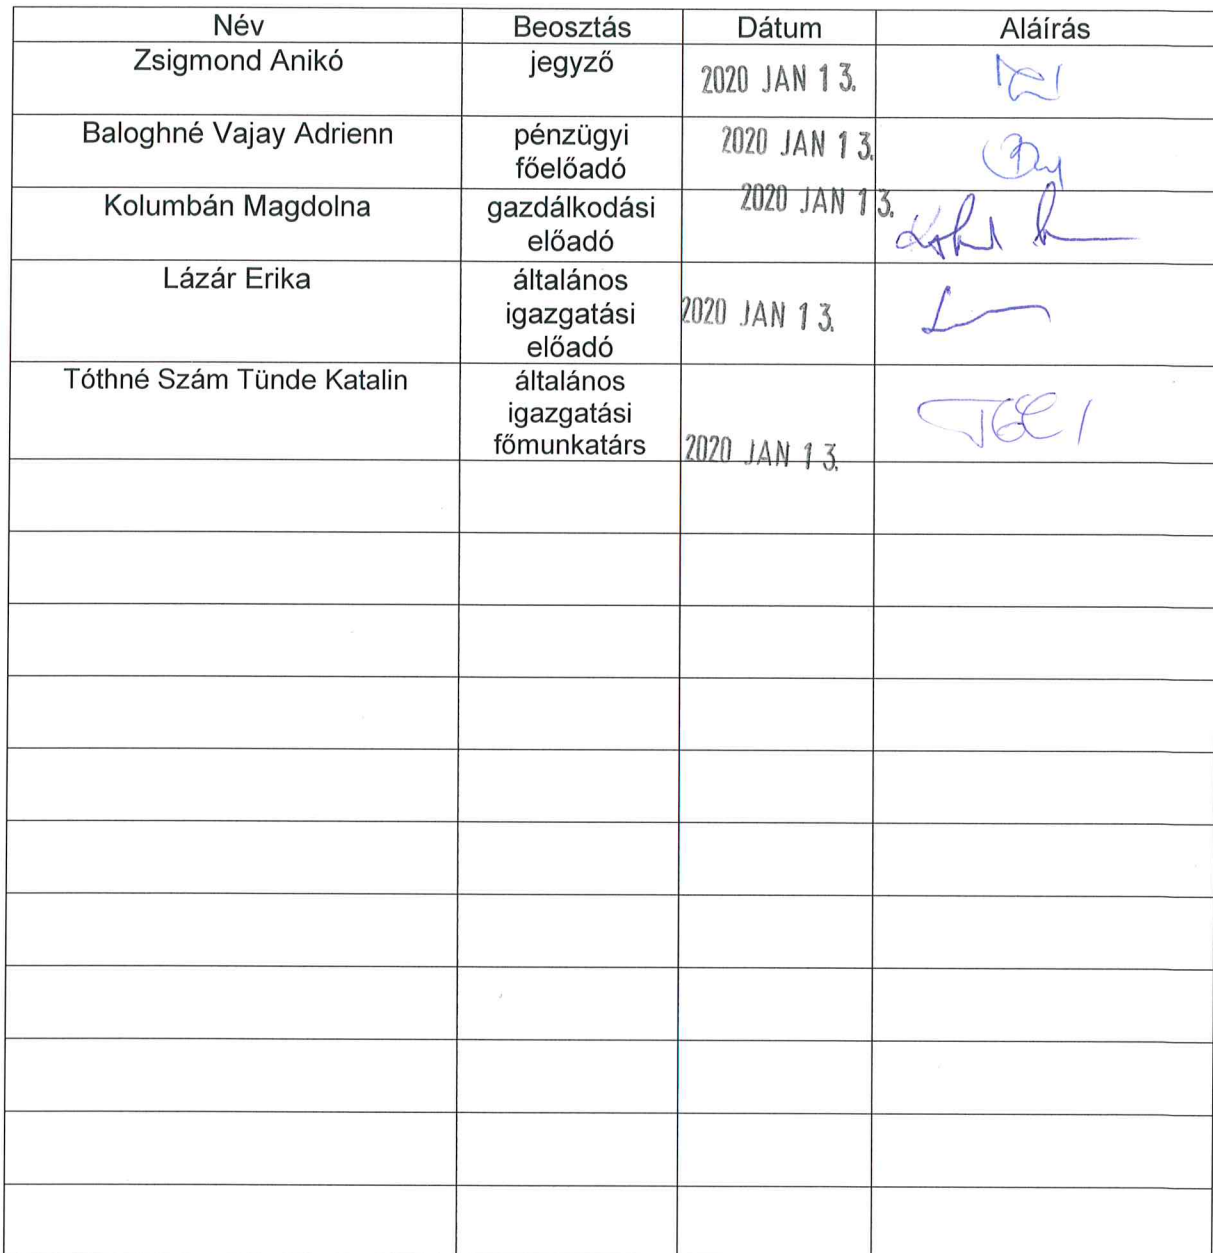 Név Beosztás Dátum Aláírás
Zsigmond Anikó jegyző 2020 JAN 13.
Baloghné Vajay Adrienn pénzügyi 2020 JAN 13.
főelőadó
Kolumbán Magdolna gazdálkodási 2020 JAN 13.
előadó
Lázár Erika általános
igazgatási 2020 JAN 13.
előadó
Tóthné Szám Tünde Katalin általános
igazgatási
főmunkatárs 2020 JAN 13.